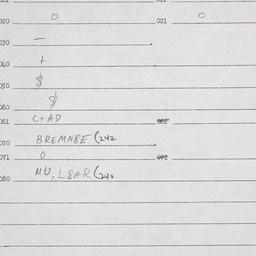 020 O 021 O
030 —
040 +
050 $
060 $
061 C+AD 062
070 BREMN8E (242
071 O 072
080 NU, L8AR (240